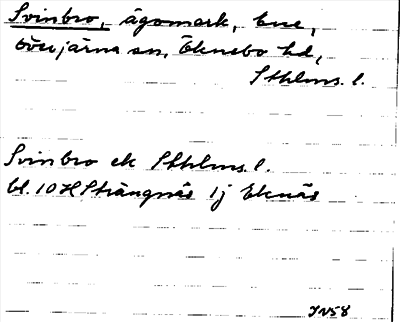 Svinbro, ägomark, Ene,
Överjärna sn, Öknebo hd,
Sthlms. l.
Svinbro ek Sthlms. l.
bl. 10H Strängnäs 1j Eknäs
JN58